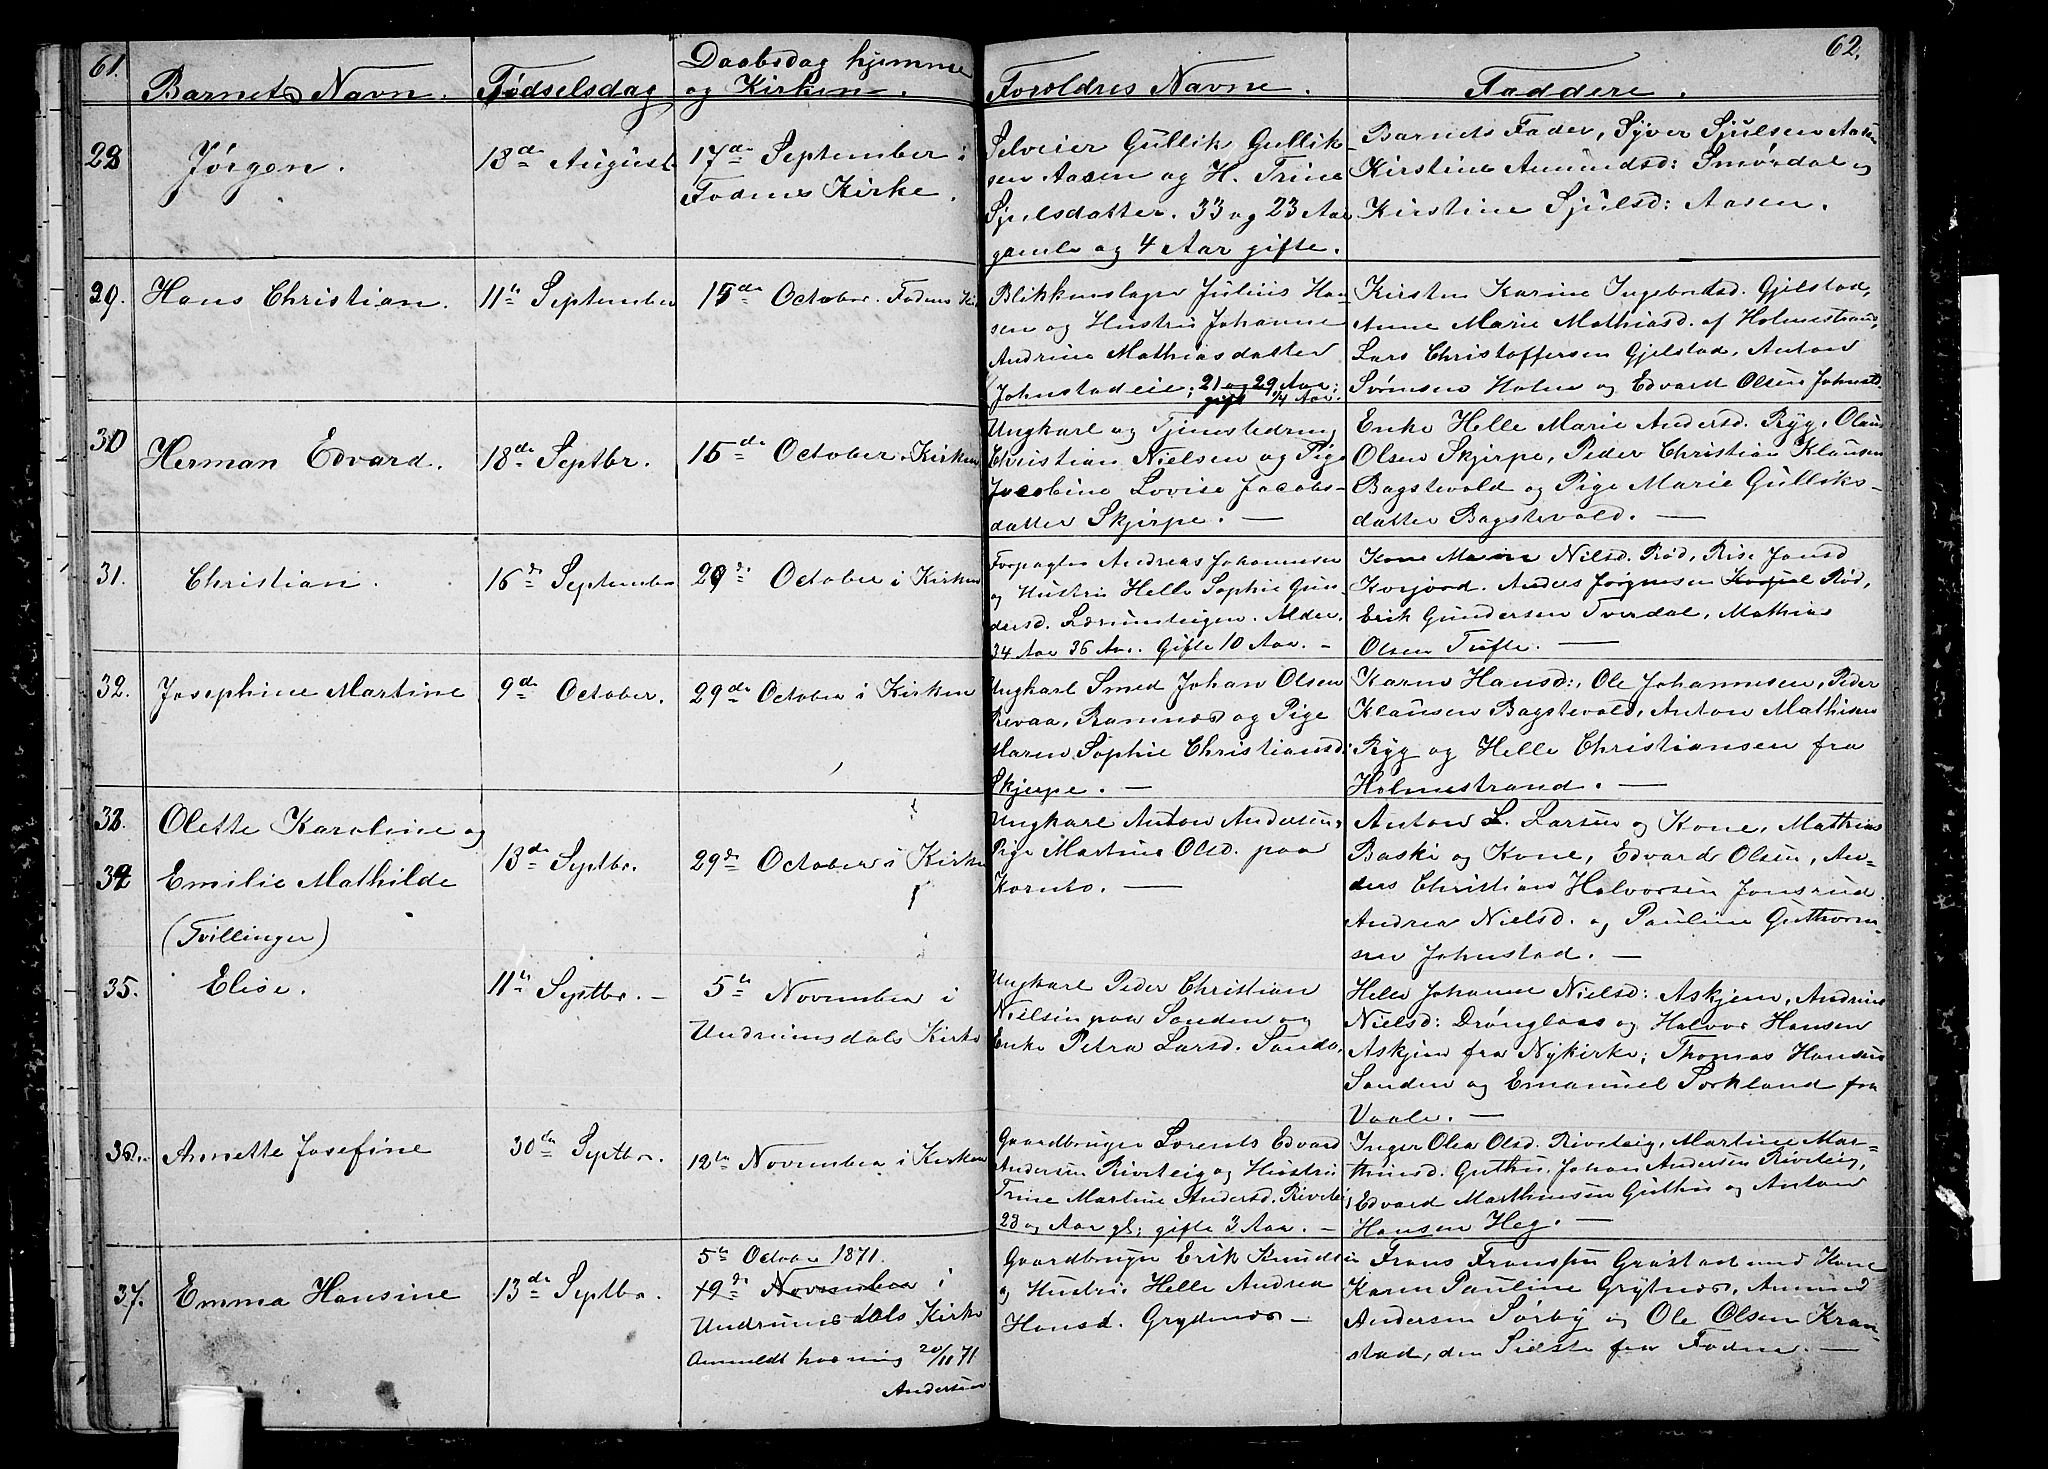 61.
62.
Barnets Navn.
Fødselsdag
Daabsdag hjemme
og Kirken.
Forældres Navne.
Faddere.
28
Jørgen.
18de August
17de September i
Fodens Kirke.
Selveier Gullik Gullik-
sen Aasen og H. Trine
Sjulsdatter. 33 og 23 Aar
gamle og 4 Aar gifte.
Barnets Fader, Syver Sjulsen Aasen
Kirstine Amundsd: Smørdal og
Kirstine Sjulsd: Aasen.
29.
Hans Christian.
11te September
15de October. Fodens
Blikkenslager Julius Han-
sen og Hustru Johanne
Andrine Mathiasdatter
Johnstadeie; 21 og 29 Aar;
gift 1/4 Aar.
Kirsten Karine Ingebretsd. Gjelstad,
Anne Marie Mathiasd. af Holmestrand,
Lars Christoffersen Gjelstad, Anton
Holm og Edvard Olsen Johnstd.
30
Herman Edvard.
18de Septbr.
15de October Kirken
Ungkarl og Tjenestedreng
Christian Nielsen og Pige
Jacobine Lovise Jacobs-
datter Skjerpe. —
Enke Helle Marie Andersd. Ryg, Olaus
Olsen Skjerpe, Peder Christian Klausen
Bagstevold og Pige Marie Gulliks-
datter Bagstevold. —
31.
Christian.
16de September
29de October i Kirken
Forpagter Andreas Johannesen
og Hustru Helle Sophie Gun-
dersd. Alder.
34 Aar 36 Aar. Gifte 10 Aar. -
Kone Nielsd. Rød, Jansd
Anders Jørgensen Rød,
Erik Gundersen Tverdal, Mathias
Olsen Tufte. —
32.
Josephine Martine
9de October.
29de October i Kirken
Ungkarl Smed Johan Olsen
Revaa, Ramnæs og Pige
Maren Sophie Christiansd:
Skjerpe. —
Karen Hansd:, Ole Johannesen, Peder
Klausen Bagstevold, Anton Mathisen
Ryg og Helle Christiansen fra
Holmestrand. —
33.
Olette Karoline og
34
Emilie Mathilde
(Tvillinger)
13de Septbr.
29de October i Kirken
Ungkarl Anton Andersen,
Pige Martine Olsd. paa
—
Anton L. Larsen og Kone, Mathias
og Kone, Edvard Olsen, An-
ders Christian Halvorsen Jonsrud
Andrea Nielsd. og Pauline Guthorm-
sen Johnstad. —
35.
Elise.
11te Septbr. -
5te November i
Undrumsdals Kirke
Ungkarl Peder Christian
Nielsen paa Sanden og
Enke Petra Larsd. Sande.
Helle Johanne Nielsd: Askjem, Andrine
Nielsd: og Halvor Hansen
Askjem fra Nykirke; Thomas Hansen
Sanden og Emanuel fra
Vaale. —
36.
Annette Josefine
30te Septbr.
12te November i Kirken
Gaardbruger Lorents Edvard
Andersen Riveteig og Hustru
Trine Martine Andersd. Rivetei
23 og Aar gl; gifte 3 Aar. -
Inger Olea Olsd. Riveteig, Martine Mar-
thinsd: Guthu. Johan Andersen Riveteig,
Edvard Marthinsen Guthu og Anton
Hansen Heg. —
37.
Emma Hansine
13de Septbr.
5te October 1871.
19de November i
Undrumsdals Kirke
Anmeldt hos mig 20/11 71
Andersen
Gaardbruger Erik Knudsen
og Hustru Helle Andrea
Hansd. Grydenæs —
Frans Franssen Gråstad med Kone
Karen Pauline Grytnæs, Amund
Andersen Sørby og Ole Olsen Kran-
stad, den Sidste fra Foden. —